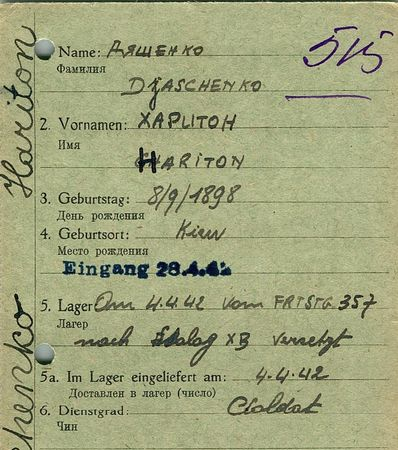 515
Name: ДЯЩЕНКО
Фамилия
DJASCHENKO
2. Vornamen: ХАРИТОН
Имя
HARITON
3. Geburtstag: 8/9/1898
День рождения
4. Geburtsort: Kiew
Место рождения
Eingang 28.4.42
5. Lager Am 4.4.42 vom FRTSTG 357
Лагерь
nach Stalag XB versetzt
5a. Im Lager eingeliefert am: 4.4.42
Доставлен в лагерь (число)
6. Dienstgrad: Soldat
Чин
Hariton
chenko